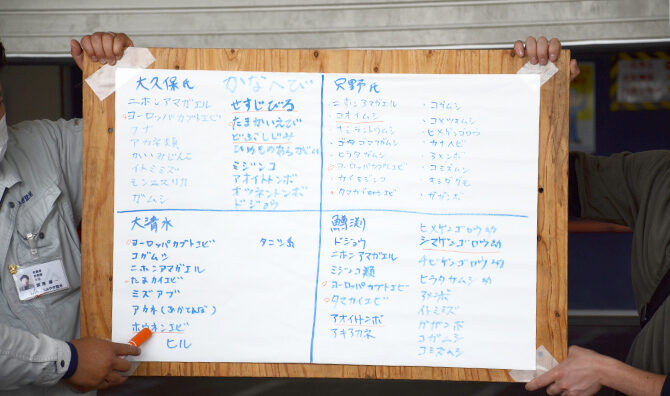 大久保氏
ニホンアマガエル
ヨーロッパカブトエビ
フナ
アカネ類
かいみじんこ
イトミミズ
モンユスリカ
ガムシ
かなへび
せすじびる
たまかいえび
どぶしじみ
ひめものあらがい
ミジンコ
アオイトトンボ
オツネントンボ
ドジョウ
只野氏
・ニホンアマガエル
・コオイムシ
・ゴマフガムシ
・ヒラタガムシ
・ヨーロッパカブトエビ
・カイミジンコ
・タマカイエビ
・コガムシ
・コメツキムシ
・ヒメゲンゴロウ
・カナヘビ
・アメンボ
・コミズムシ
・キシダグモ
・ガガンボ
大清水
ヨーロッパカブトエビ
コガムシ
ニホンアマガエル
たまカイエビ
ミズアブ
アカネ(あかとんぼ)
ホウネンエビ
ヒル
タニシ系
鱒渕
ドジョウ
ニホンアマガエル
ミジンコ類
ヨーロッパカブトエビ
タマカイエビ
アオイトトンボ
アキアカネ
ヒメゲンゴロウ幼
シマゲンゴロウ幼
チビゲンゴロウ幼
ヒラタガムシ幼
アメンボ
イトミミズ
ガガンボ
コガムシ
コミズムシ